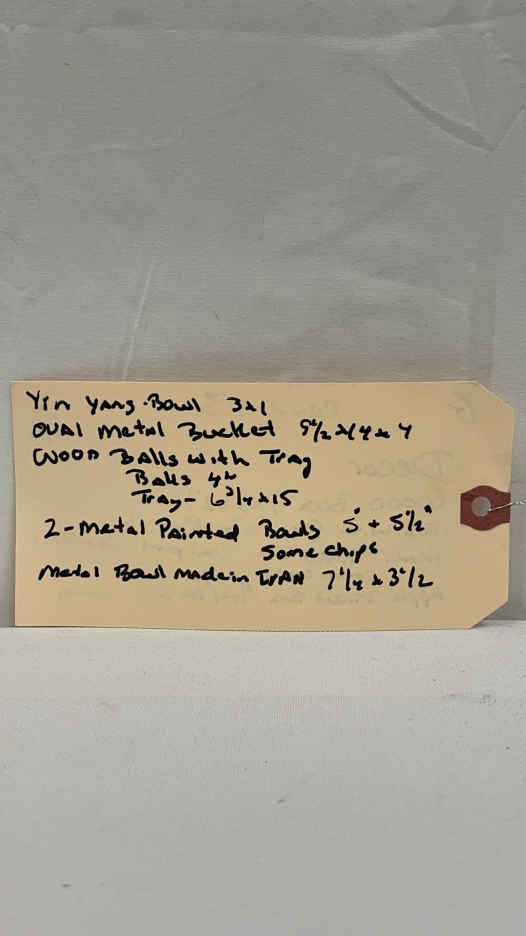 Yin Yang Bowl 3x1
Oval Metal Bucket 9 1/2 x 14 x 4
Wood Balls with Tray
Balls 4"
Tray - 6 3/4 x 15
2 - Metal Painted Bowls 5" + 5 1/2"
Some chips
Metal Bowl Made in IRAN 7 1/4 x 3 1/2